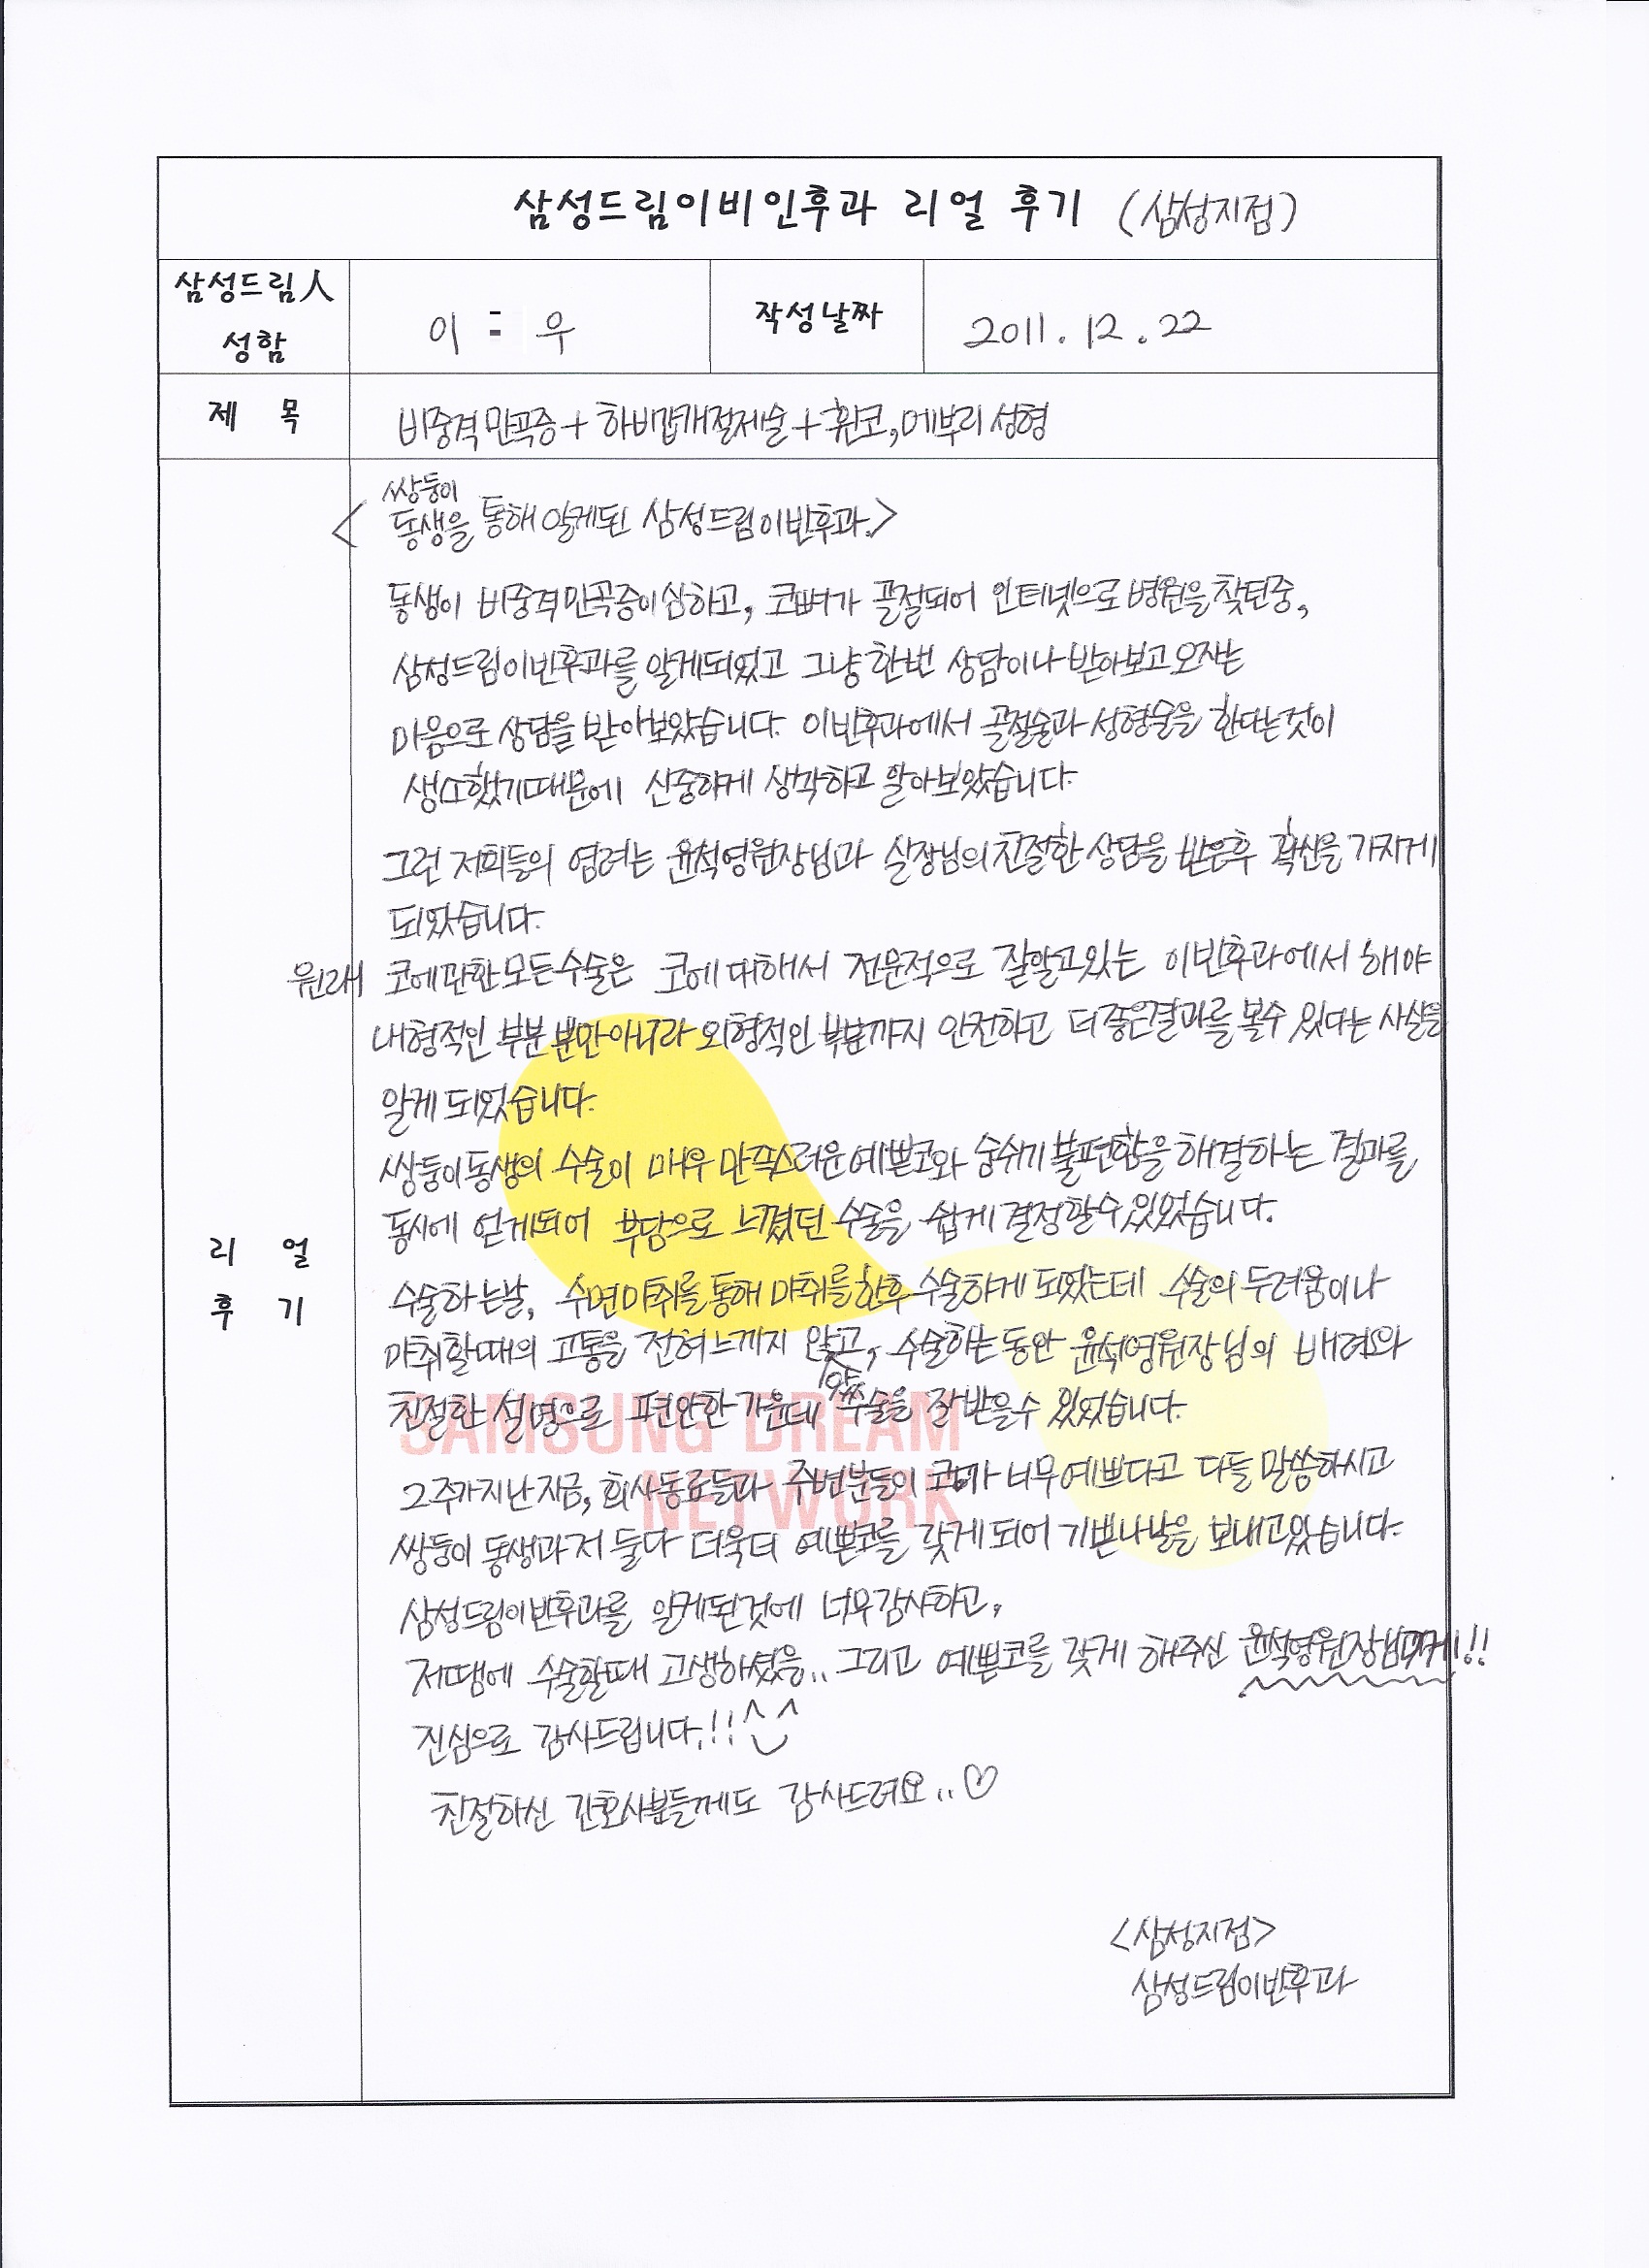 삼성드림이비인후과 리얼 후기 (삼성지점)
삼성드림人
성함
이 우
작성날짜
2011.12.22
제 목
비중격만곡증+하비갑개절제술+휜코,메부리성형
쌍둥이
<동생을 통해 알게된 삼성드림이빈후과.>
동생이 비중격만곡증이심하고, 코뼈가 골절되어 인터넷으로 병원을 찾던중,
삼성드림이빈후과를 알게되었고 그냥 한번 상담이나 받아보고오자는
마음으로 상담을 받아보았습니다. 이빈후과에서 골절술과 성형술을 한다는것이
생소했기때문에 신중하게 생각하고 알아보았습니다.
그런 저희들의 염려는 윤석영원장님과 실장님의 친절한 상담을 받은후 확신을 가지게
되었습니다.
원래 코에관한 모든수술은 코에 대해서 전문적으로 잘알고있는 이빈후과에서 해야
내형적인 부분 뿐만아니라 외형적인 부분까지 안전하고 더좋은결과를 볼수 있다는 사실을
알게 되었습니다.
쌍둥이동생의 수술이 매우 만족스러운 예쁜코와 숨쉬기 불편함을 해결하는 결과를
동시에 얻게되어 부담으로 느꼈던 수술을 쉽게 결정할수있었습니다.
리 얼
후 기
수술하는날, 수면마취를 통해 마취를 한후 수술하게 되었는데 수술의 두려움이나
마취할때의 고통을 전혀느끼지 않고, 수술하는 동안 윤석영원장님의 배려와
친절한 설명으로 편안한 가운데 수술을 잘받을수 있었습니다.
SAMSUNG DREAM
NETWORK
2주가지난지금, 회사동료들과 주변분들이 코가 너무예쁘다고 다들 말씀하시고
쌍둥이 동생과저 둘다 더욱더 예쁜코를 갖게되어 기쁜나날을 보내고있습니다.
삼성드림이빈후과를 알게된것에 너무감사하고,
저땜에 수술할때 고생하셨을.. 그리고 예쁜코를 갖게 해주신 윤석영원장님께!!
진심으로 감사드립니다.!!
친절하신 간호사분들께도 감사드려요..♡
<삼성지점>
삼성드림이빈후과